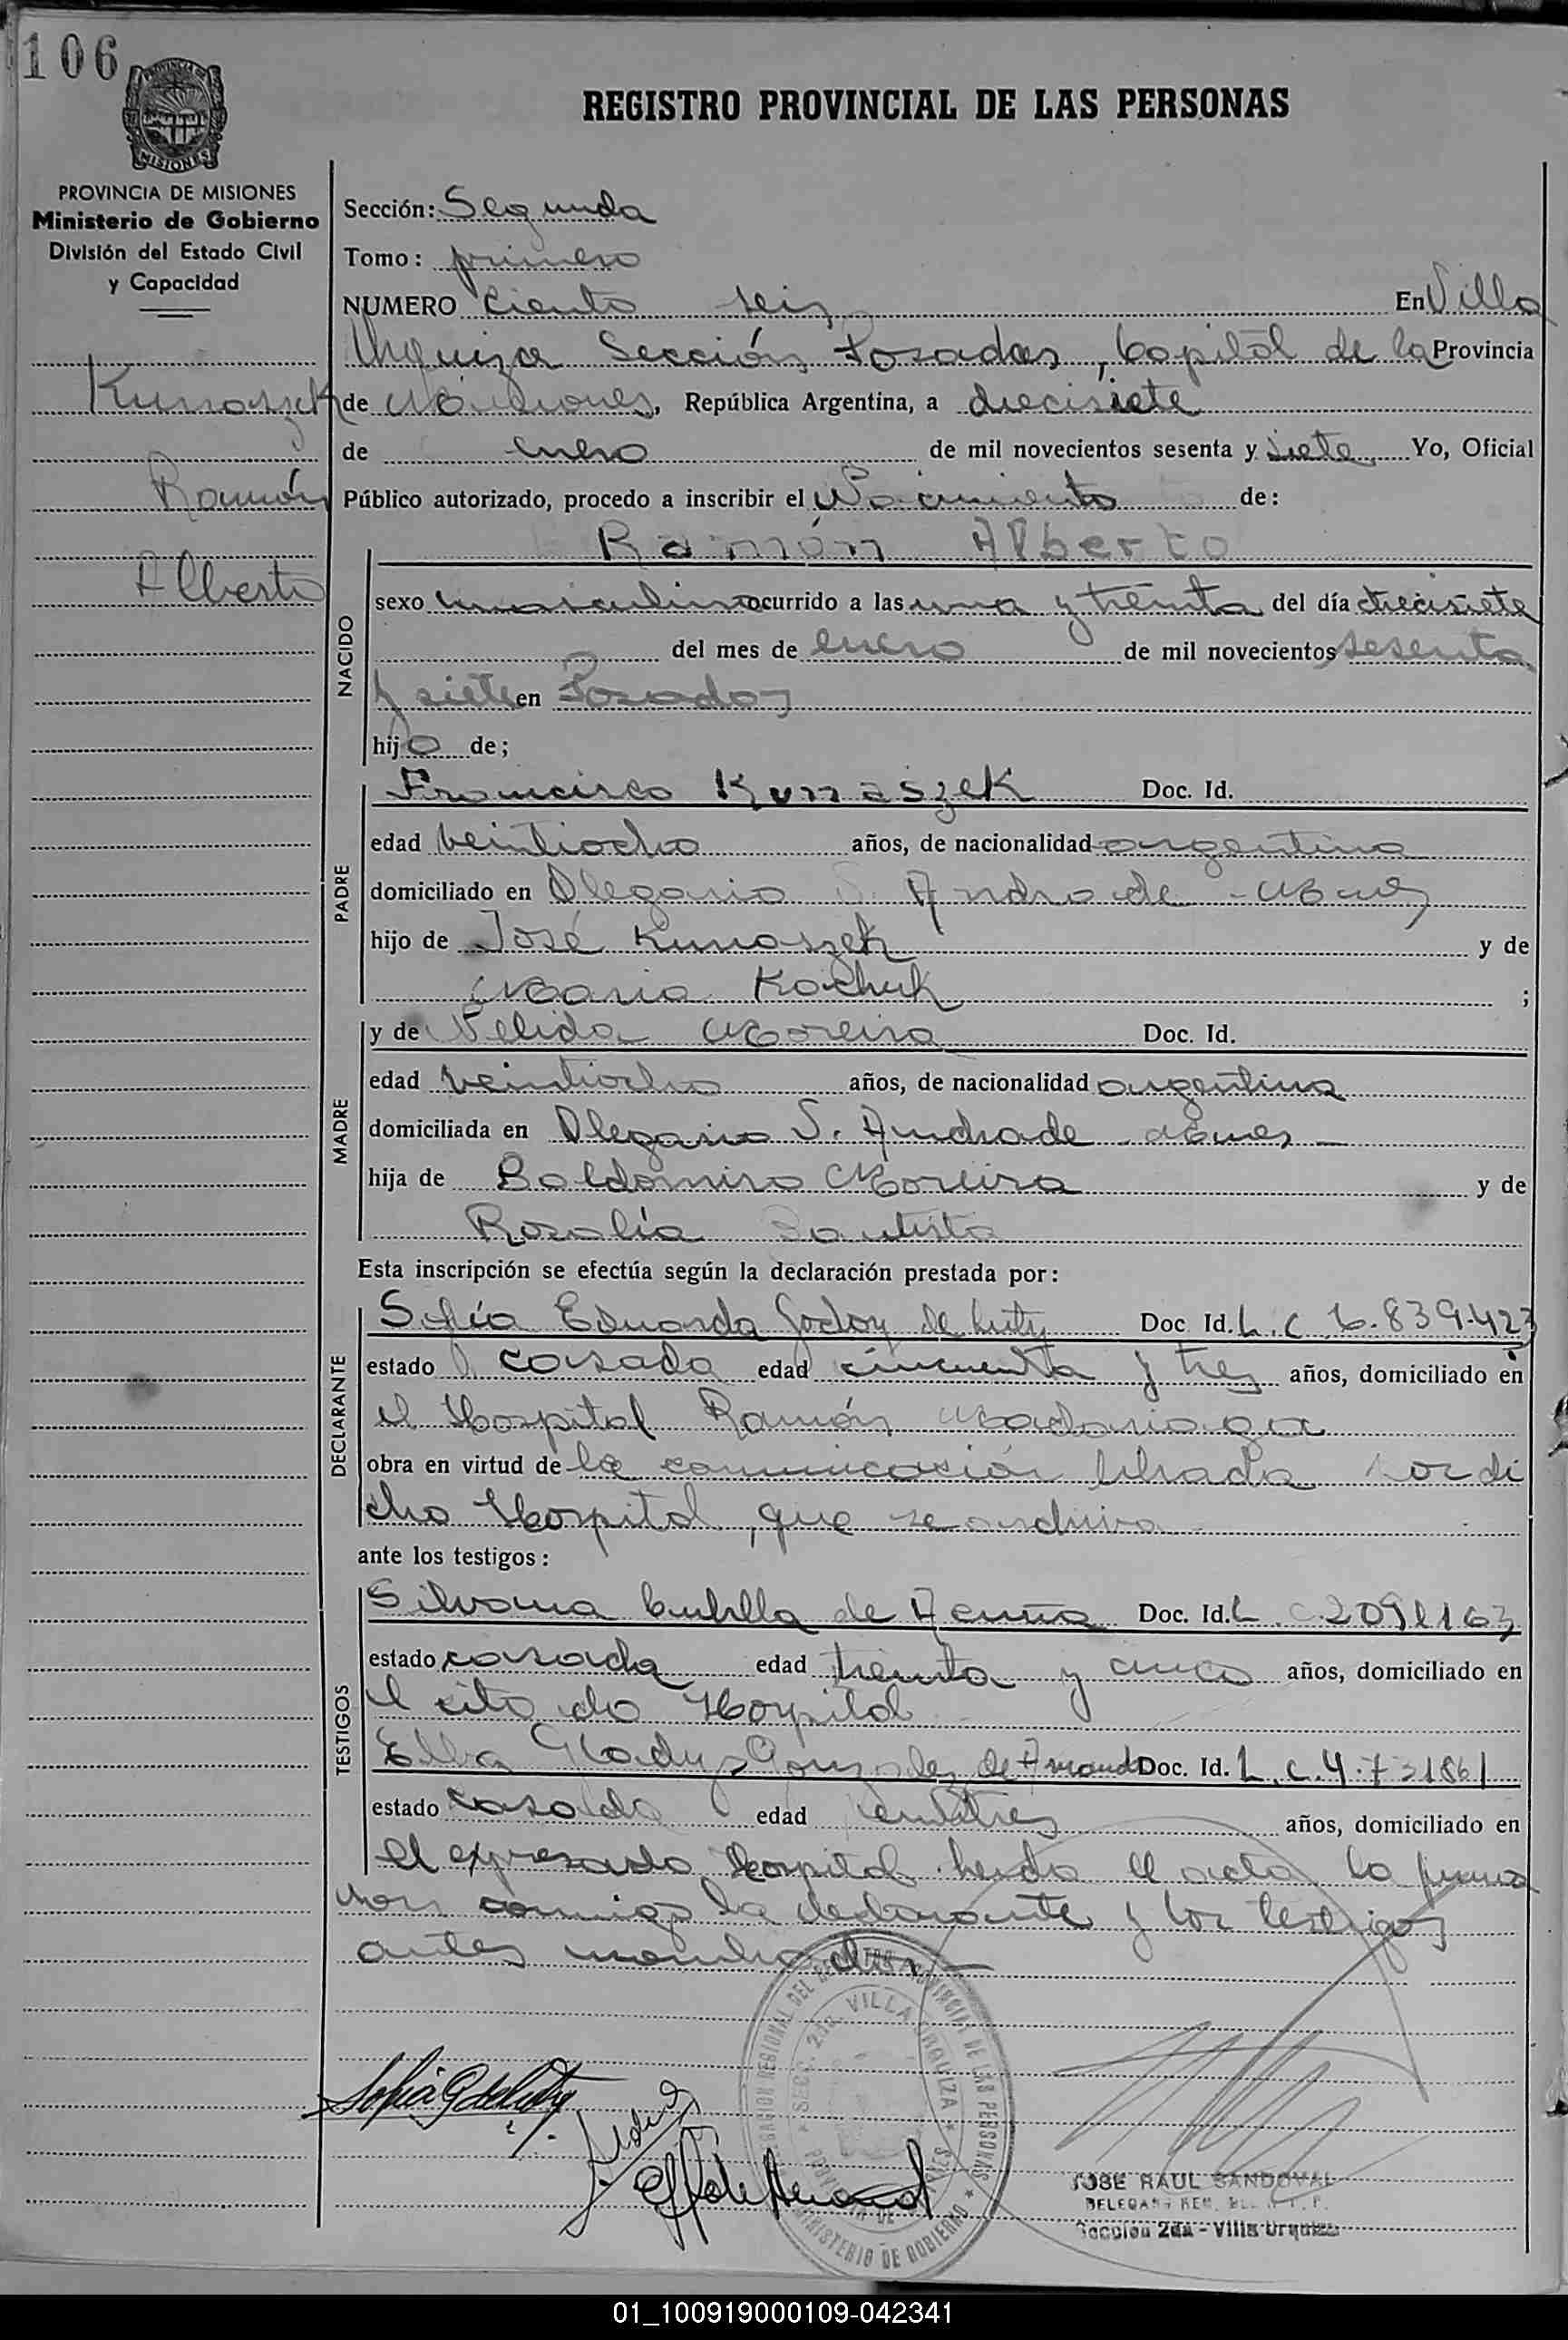 106
PROVINCIA DE MISIONES
Ministerio de Gobierno
División del Estado Civil
y Capacidad
REGISTRO PROVINCIAL DE LAS PERSONAS
Sección: Segunda
Tomo: primero
NUMERO ciento seis En Villa
Urquiza Sección Posadas, Capital de la Provincia
de Misiones, República Argentina, a diecisiete
de enero de mil novecientos sesenta y siete Yo, Oficial
Público autorizado, procedo a inscribir el Nacimiento de:
Kunaszek
Ramón
Alberto
Ramón Alberto
NACIDO
sexo masculino ocurrido a las una y treinta del día diecisiete
del mes de enero de mil novecientos sesenta
y siete en Posadas
hijo de;
PADRE
Francisco Kunaszek Doc. Id.
edad veintiocho años, de nacionalidad argentina
domiciliado en Olegario V. Andrade - Mnes
hijo de José Kunaszek y de
Maria Kochuk ;
MADRE
y de Nelida Moreira Doc. Id.
edad veintiocho años, de nacionalidad argentina
domiciliada en Olegario V. Andrade - Mnes -
hija de Baldomiro Moreira y de
Rosalía Bautista
Esta inscripción se efectúa según la declaración prestada por:
DECLARANTE
Sofía Eduarda Godoy de Doc Id. L.C. 6.839.423
estado casada edad cincuenta y tres años, domiciliado en
el Hospital Ramón Madariaga
obra en virtud de la comunicación librada por di
cho Hospital, que se archiva
ante los testigos:
TESTIGOS
Silvana de Acuña Doc. Id. L.C. 2091163
estado casada edad treinta y cinco años, domiciliado en
el citado Hospital
Elba Gladys Gonzalez de Doc. Id. L.C. 4.731861
estado casada edad años, domiciliado en
el expresado Hospital. leida el acta la firma
non conmigo la declarante y los testigos
antes nombrados -
DELEGACION REGIONAL DEL REGISTRO PROVINCIAL DE LAS PERSONAS
SECC. 2da. VILLA URQUIZA
MINISTERIO DE GOBIERNO
JOSE RAUL SANDOVAL
Sección 2da - Villa Urquiza
01_100919000109-042341